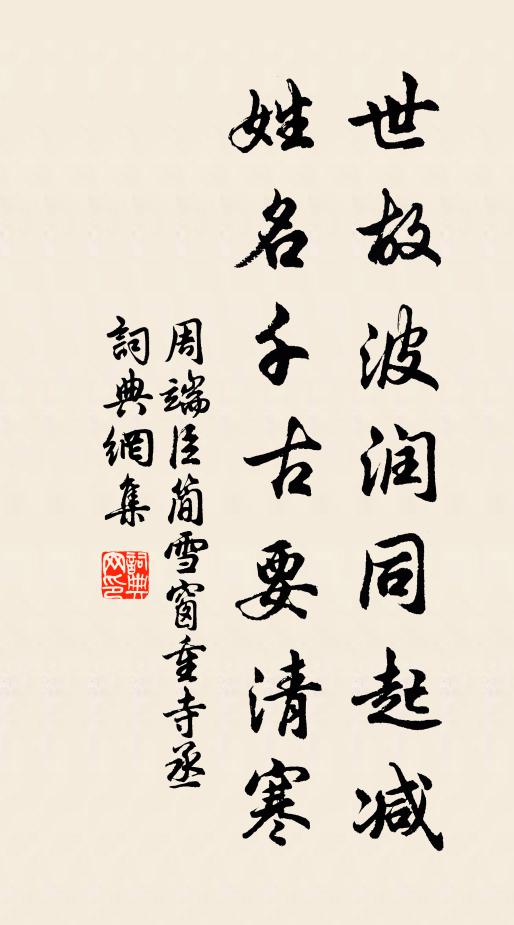 世故波润同起减
姓名千古要清寒
周端臣简雪窗重寺丞
詞典網集
詞典网印